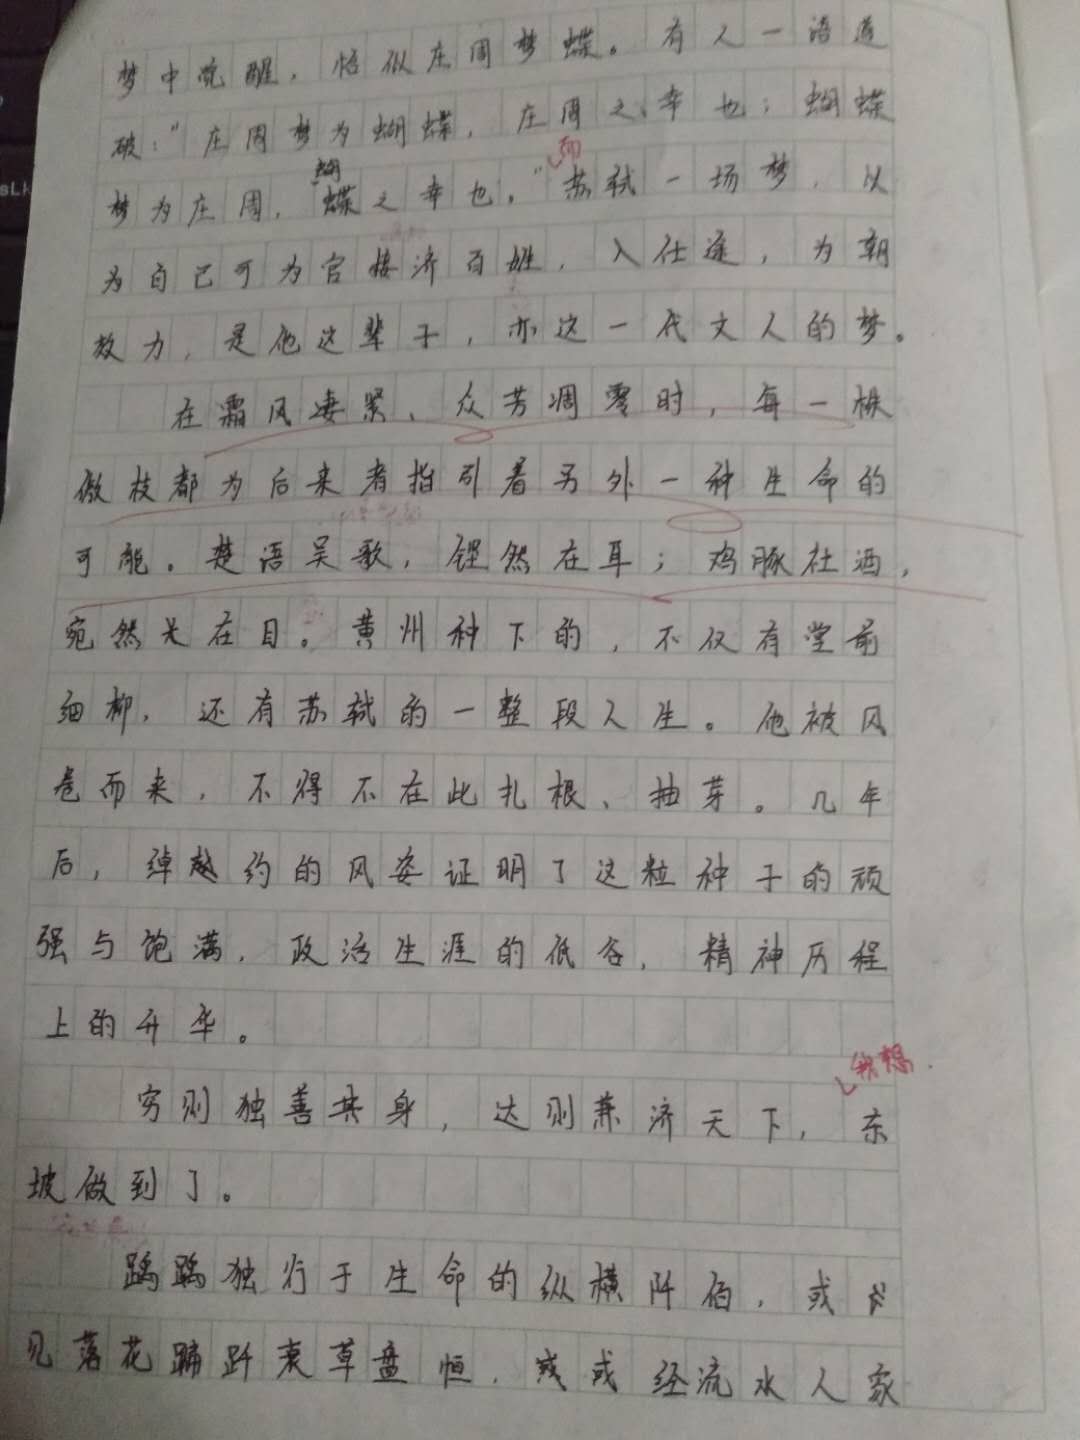 梦中觉醒，恰似庄周梦蝶。有人一语道
破："庄周梦为蝴蝶，庄周之幸也；蝴蝶
梦为庄周，蝴蝶之幸也。"而苏轼一场梦，以
为自己可为官接济百姓，入仕途，为朝
效力，是他这辈子，亦这一代文人的梦。
在霜风凄紧、众芳凋零时，每一株
傲枝都为后来者指引着另外一种生命的
可能。楚语吴歌，铿然在耳；鸡豚社酒，
宛然光在目。黄州种下的，不仅有堂前
细柳，还有苏轼的一整段人生。他被风
卷而来，不得不在此扎根、抽芽。几年
后，绰越约的风姿证明了这粒种子的顽
强与饱满，政治生涯的低谷，精神历程
上的升华。
穷则独善其身，达则兼济天下，我想东
坡做到了。
踽踽独行于生命的纵横阡佰，或
见落花踊跃衰草盘恒，或或经流水人家